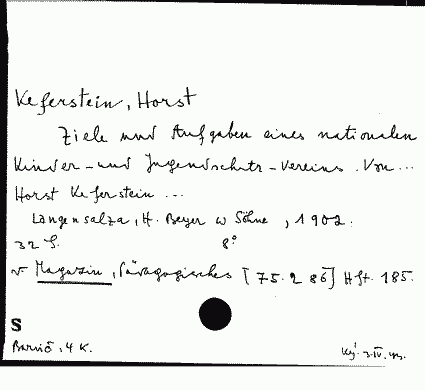 Keferstein, Horst
Ziele und Aufgaben eines nationalen
Kinder-und Jugendschutz-Vereins. Von...
Horst Keferstein ...
Langensalza, H. Beyer u Söhne, 1902.
32 S. 8°
v Magazin, Pädagogisches [75.286] Hft. 185.
S
4 K.